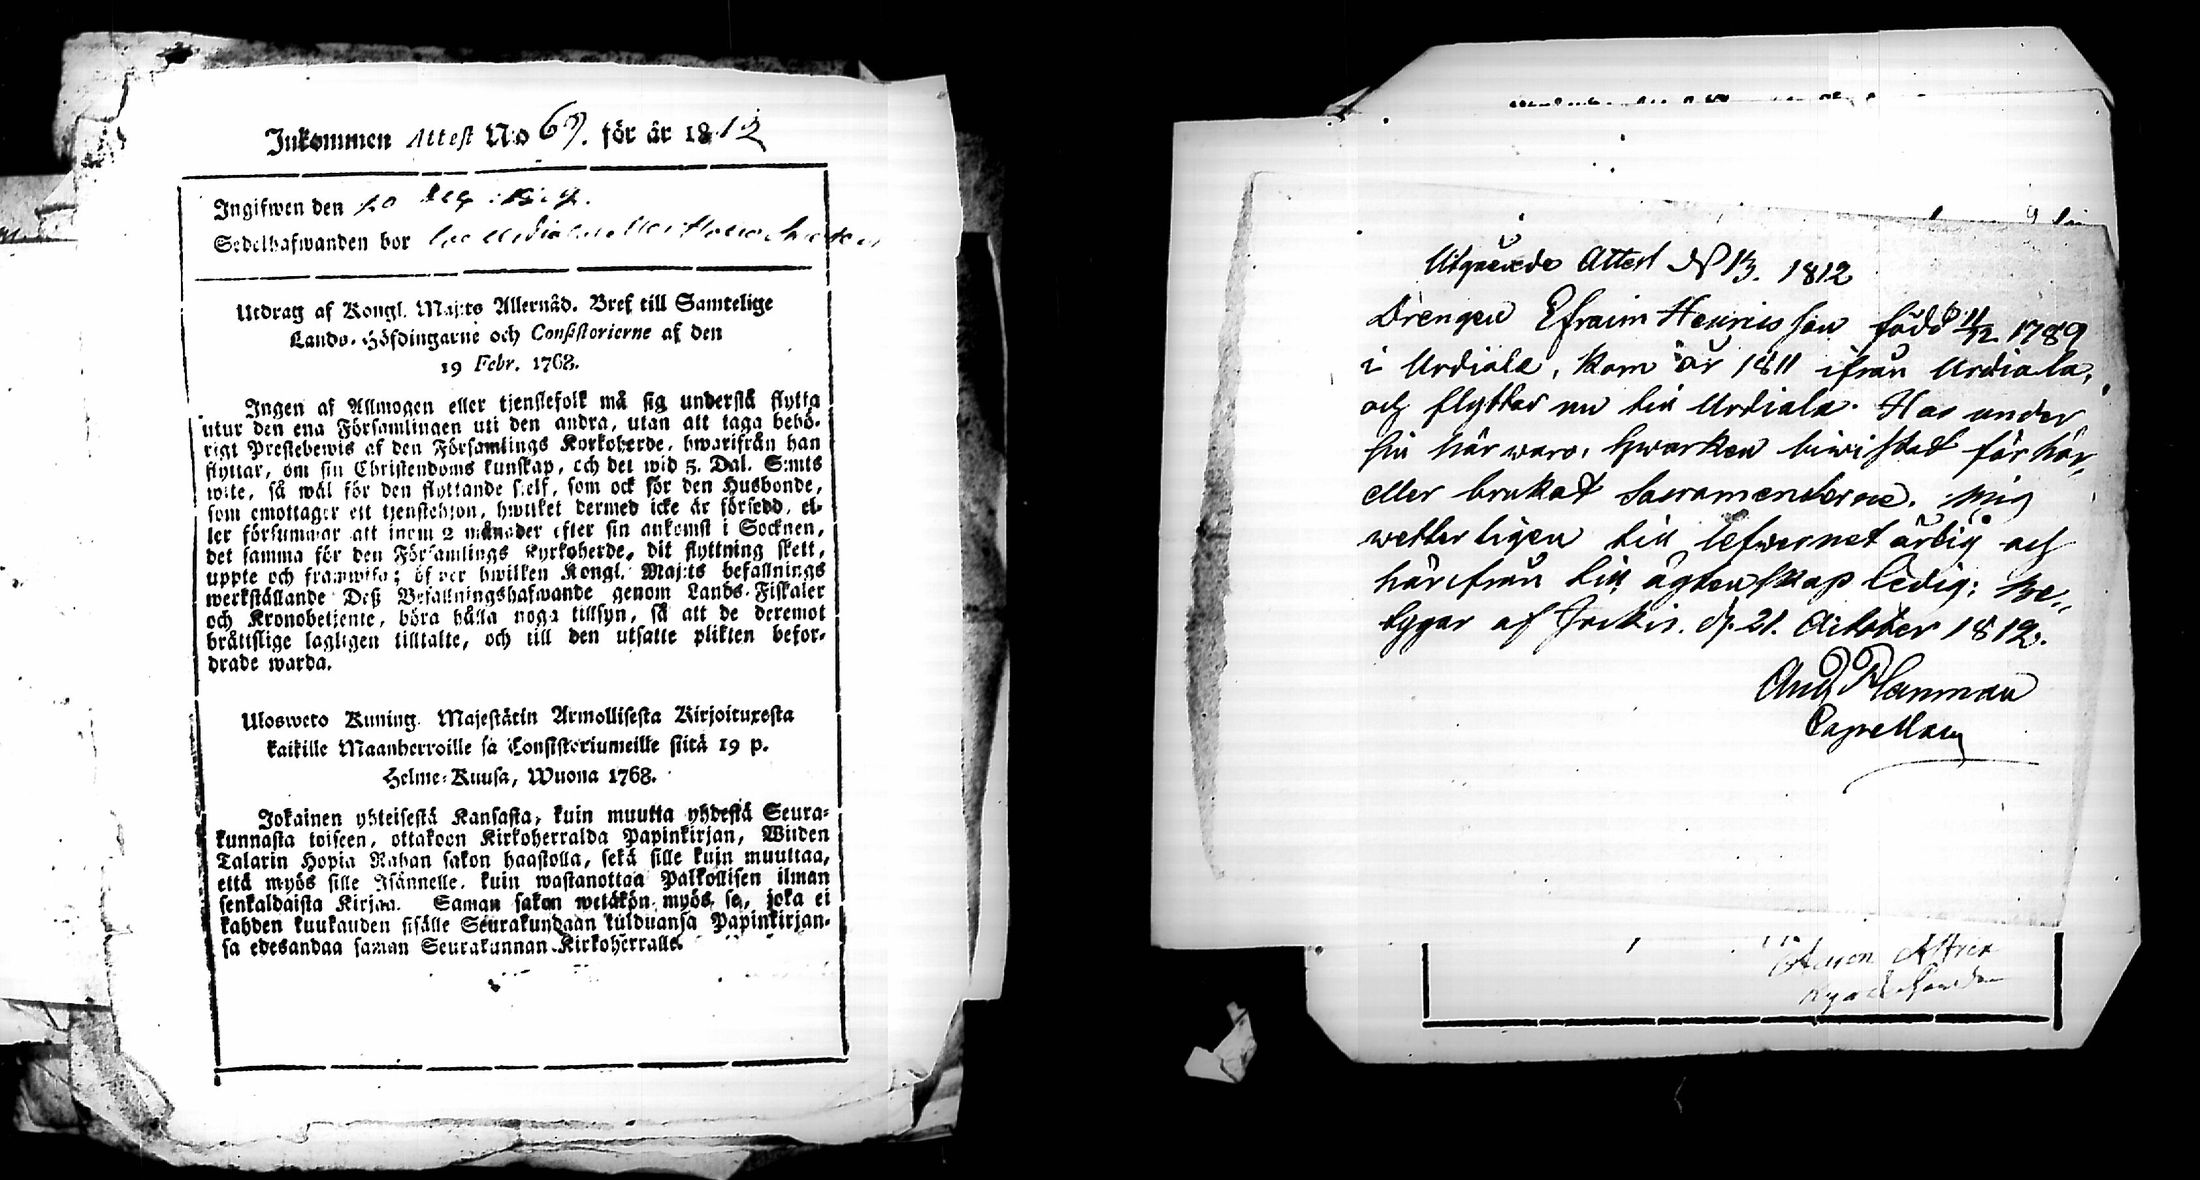 Inkommen Attest No 67. för år 1812
Ingifwen den 20
Sedelhafwanden bor
Utdrag af Kongl. Maj:ts Allernåd. Bref till Samtelige
Lands-Höfdingarne och Consistorierne af den
19 Febr. 1768.
Ingen af Allmogen eller tjenstefolk må sig understå flytta
utur den ena Församlingen uti den andra, utan att taga behö-
rigt Prestebewis af den Församlings Kyrkoherde, hwarifrån han
flyttar, om sin Christendoms kunskap, och det wid 5. Dal. S:mts
wite, så wäl för den flyttande sjelf, som ock för den Husbonde,
som emottager ett tjenstehjon, hwilket dermed icke är försedd, el-
ler försummar att inom 2 månader efter sin ankomst i Socknen,
det samma för den Församlings Kyrkoherde, dit flyttning skett,
uppte och framwisa; öfwer hwilken Kongl. Maj:ts befallnings
werkställande Deß Befallningshafwande genom Lands-Fiskaler
och Kronobetjente, böra hålla noga tillsyn, så att de deremot
bråttslige lagligen tilltalte, och till den utsatte plikten befor-
drade warda.
Ulosweto Kuning. Majestätin Armollisesta Kirjoituxesta
kaikille Maanherroille ja Consistoriumeille siitä 19 p.
Helme-Kuusa, Wuona 1768.
Jokainen yhteisestä Kansasta, kuin muutta yhdestä Seura-
kunnasta toiseen, ottakoon Kirkoherralda Papinkirjan, Wiiden
Talarin Hopia Rahan sakon haastolla, sekä sille kuin muuttaa,
että myös sille Isännelle, kuin wastanottaa Palkollisen ilman
senkaldaista Kirjaa. Saman sakon wetäkön myös se, joka ei
kahden kuukauden sisälle Seurakundaan tulduansa Papinkirjan-
sa edesandaa saman Seurakunnan Kirkoherralle.
Utgående Attest N 13. 1812
Drengen Efraim Henricsson född 11/12 1789
i Urdiala, kom år 1811 ifrån Urdiala,
och flyttar nu till Urdiala. Har under
sin här waro, hwarken biwistat förhör,
eller brukat Sacramenterne. Mig
wetterligen till lefwernet ärlig och
härifrån till ägtenskap ledig; be-
tygar af Jockis. d. 21. October 1812.
And Planman
Capellan